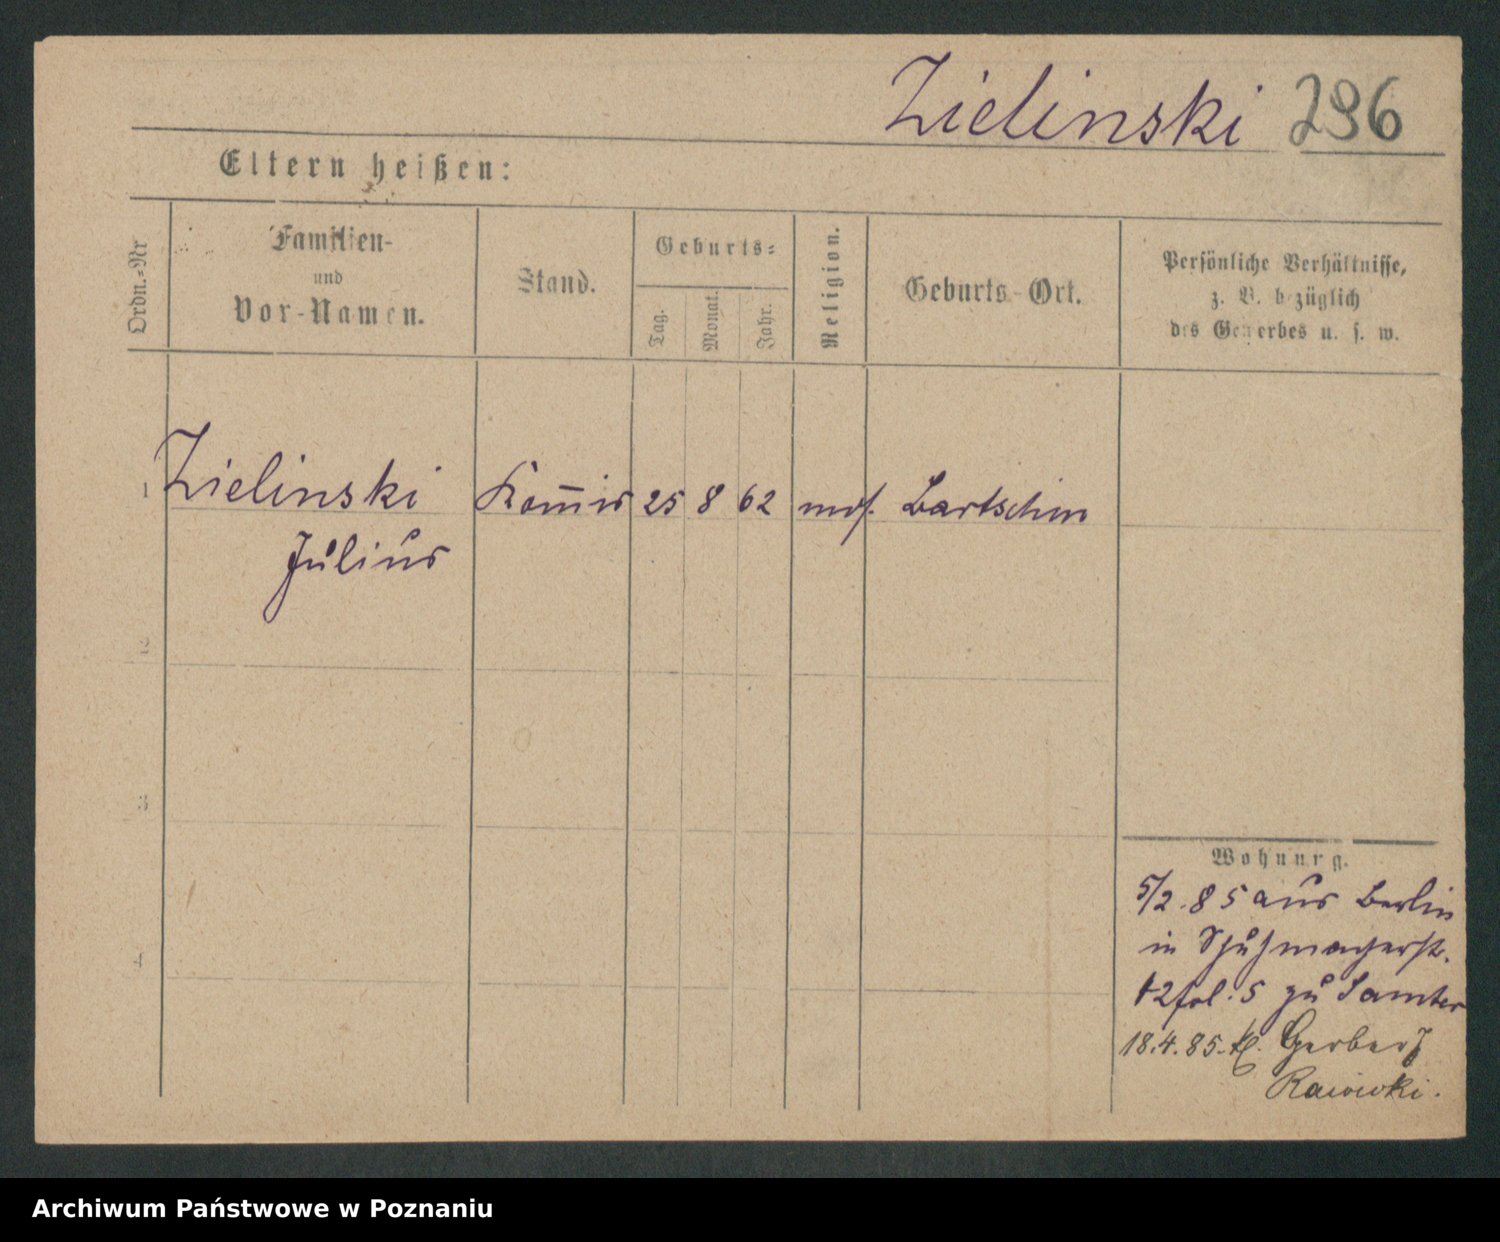 Zielinski 296
Eltern heißen:
Ordn.=Nr
Familien-
und
Vor-Namen.
Stand.
Geburts=
Tag.
Monat.
Jahr.
Religion.
Geburts-Ort.
Persönliche Verhältnisse,
z. B. bezüglich
des Gewerbes u. s. w.
1 Zielinski Kom̄is 25 8 62 mos. Bartschin
Julius
2
3
4
Wohnung.
5/2. 85 aus Berlin
in Schuhmacherstr.
zu Samter
18.4.85. Gerberf